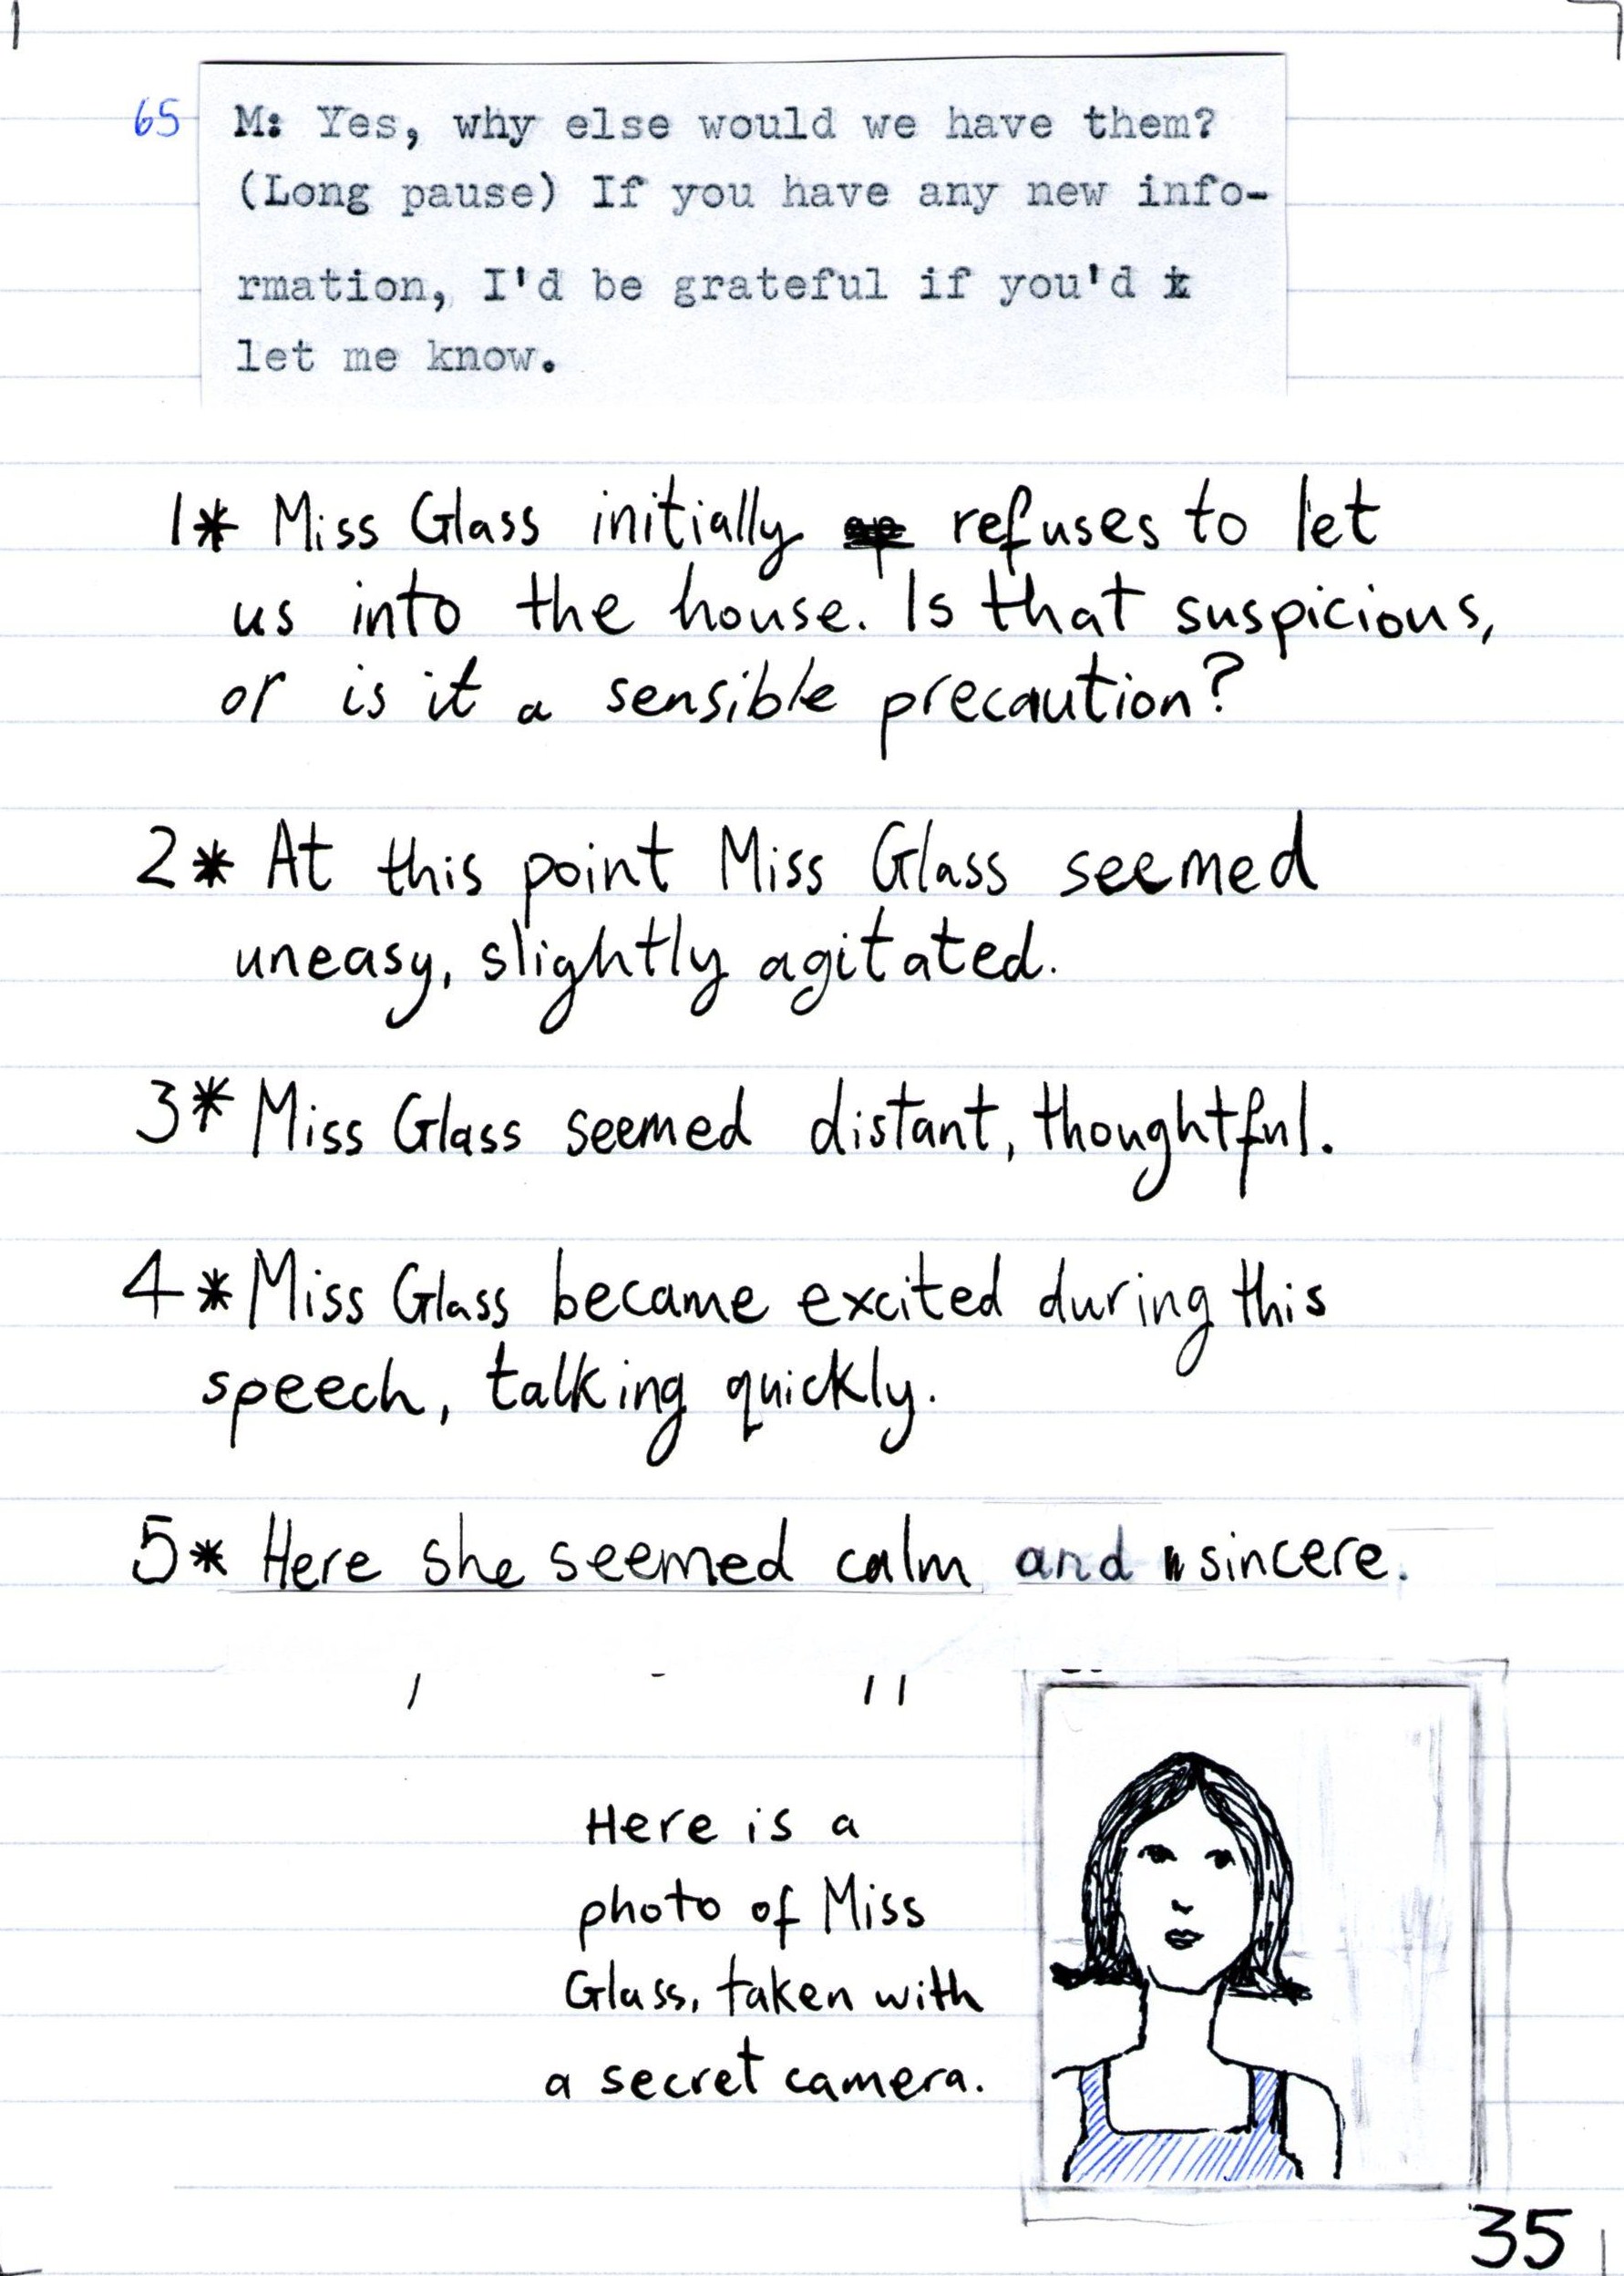 65 M: Yes, why else would we have them?
(Long pause) If you have any new info-
rmation, I'd be grateful if you'd
let me know.
1* Miss Glass initially refuses to let
us into the house. Is that suspicious,
or is it a sensible precaution?
2* At this point Miss Glass seemed
uneasy, slightly agitated.
3* Miss Glass seemed distant, thoughtful.
4* Miss Glass became excited during this
speech, talking quickly.
5* Here she seemed calm and sincere.
Here is a
photo of Miss
Glass, taken with
a secret camera.
35